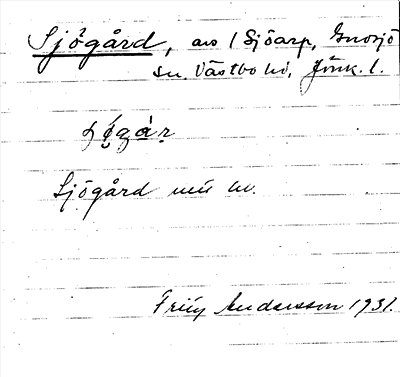 Sjögård, avs / Sjöarp, Gnosjö
sn. Västbo hd, Jönk. l.
Sjögård
Fritz Andersson 1931.